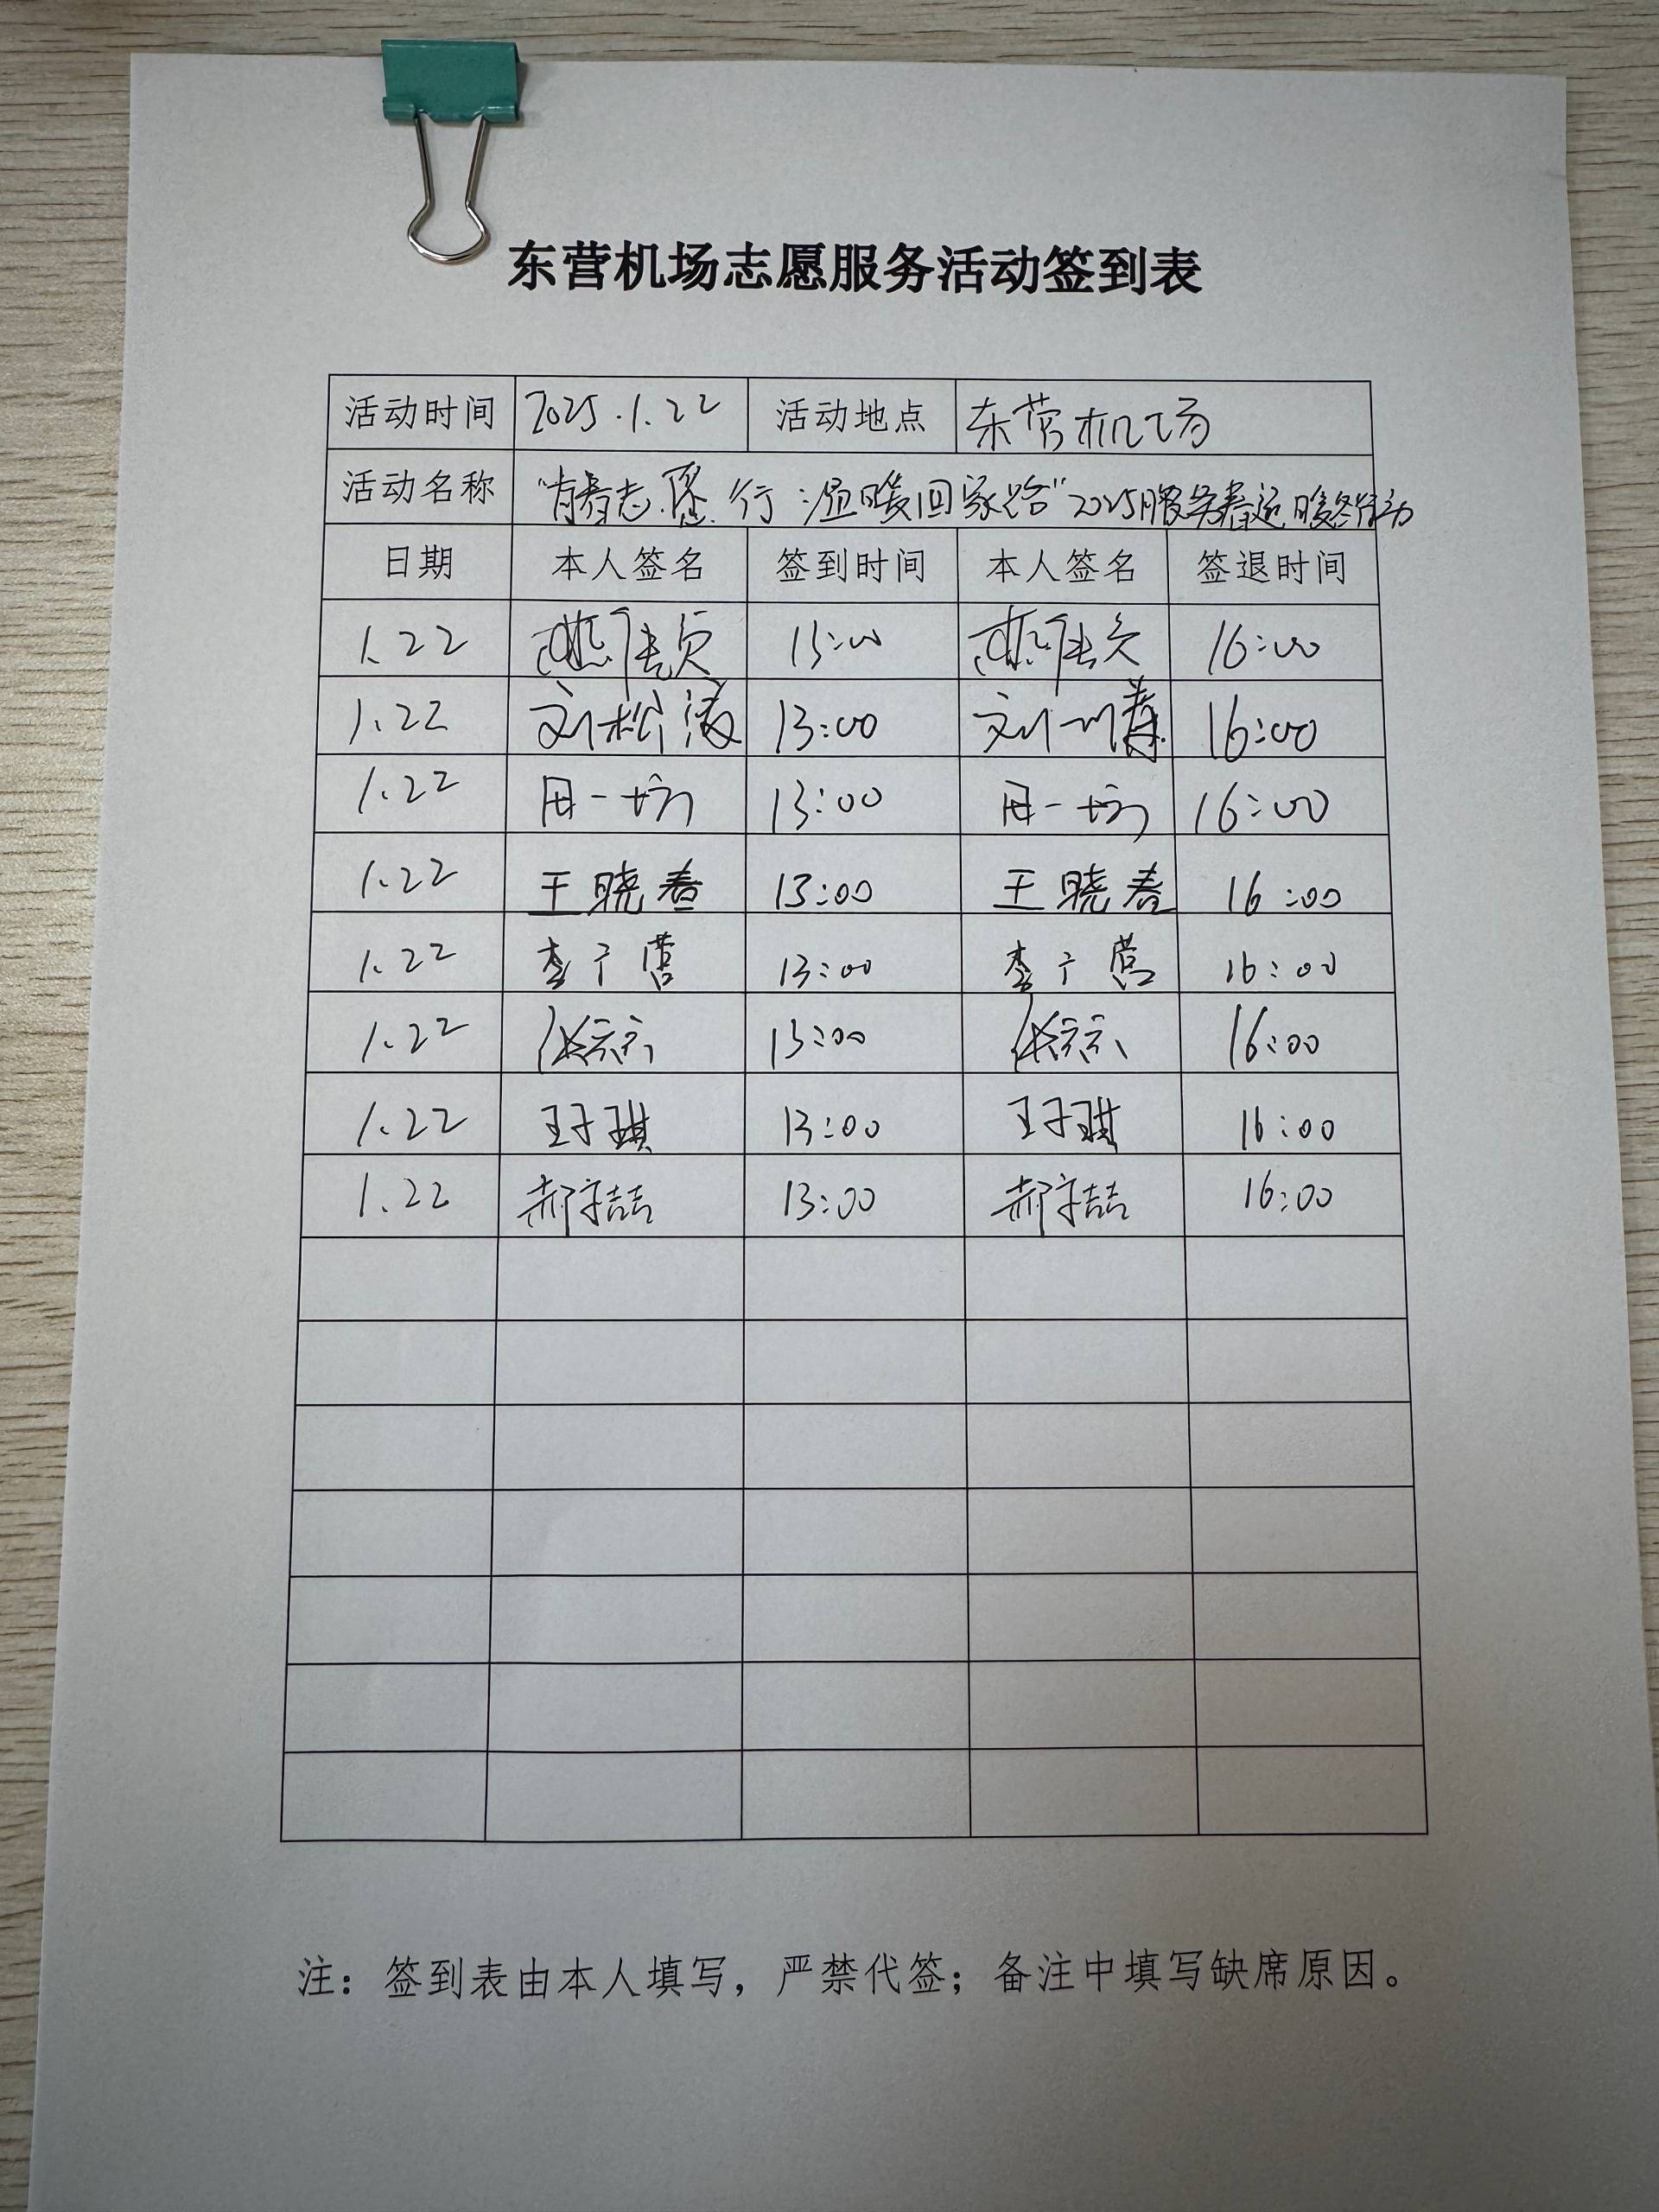 东营机场志愿服务活动签到表
活动时间 2025.1.22 活动地点 东营机场
活动名称 “青春志愿行 温暖回家路”2025服务春运暖冬行动
日期 本人签名 签到时间 本人签名 签退时间
1.22 13:00 16:00
1.22 刘 13:00 刘 16:00
1.22 一 13:00 一 16:00
1.22 王晓春 13:00 王晓春 16:00
1.22 李 13:00 李 16:00
1.22 13:00 16:00
1.22 王子琪 13:00 王子琪 16:00
1.22 郝 13:00 郝 16:00
注：签到表由本人填写，严禁代签；备注中填写缺席原因。